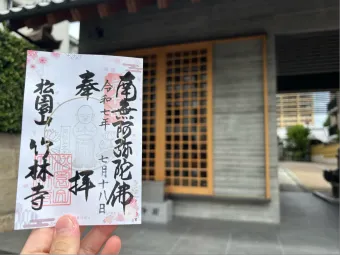 奉拝
令和七年 七月十八日
南無阿弥陀佛
松園山 竹林寺